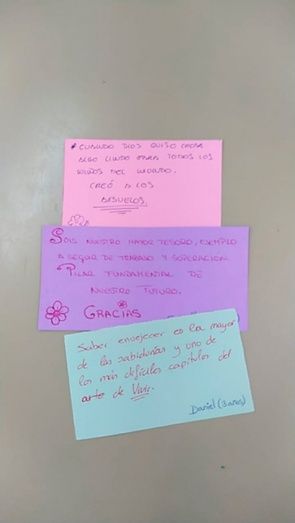 * CUANDO DIOS QUISO CREAR
ALGO LINDO PARA TODOS LOS
NIÑOS DEL MUNDO.
CREÓ A LOS
ABUELOS
SOIS NUESTRO MAYOR TESORO, EJEMPLO
A SEGUIR DE TRABAJO Y SUPERACIÓN
PILAR FUNDAMENTAL DE
NUESTRO FUTURO.
GRACIAS
Saber envejecer es la mayor
de las sabidurías y uno de
los más difíciles capítulos del
arte de Vivir.
Daniel (3 años)